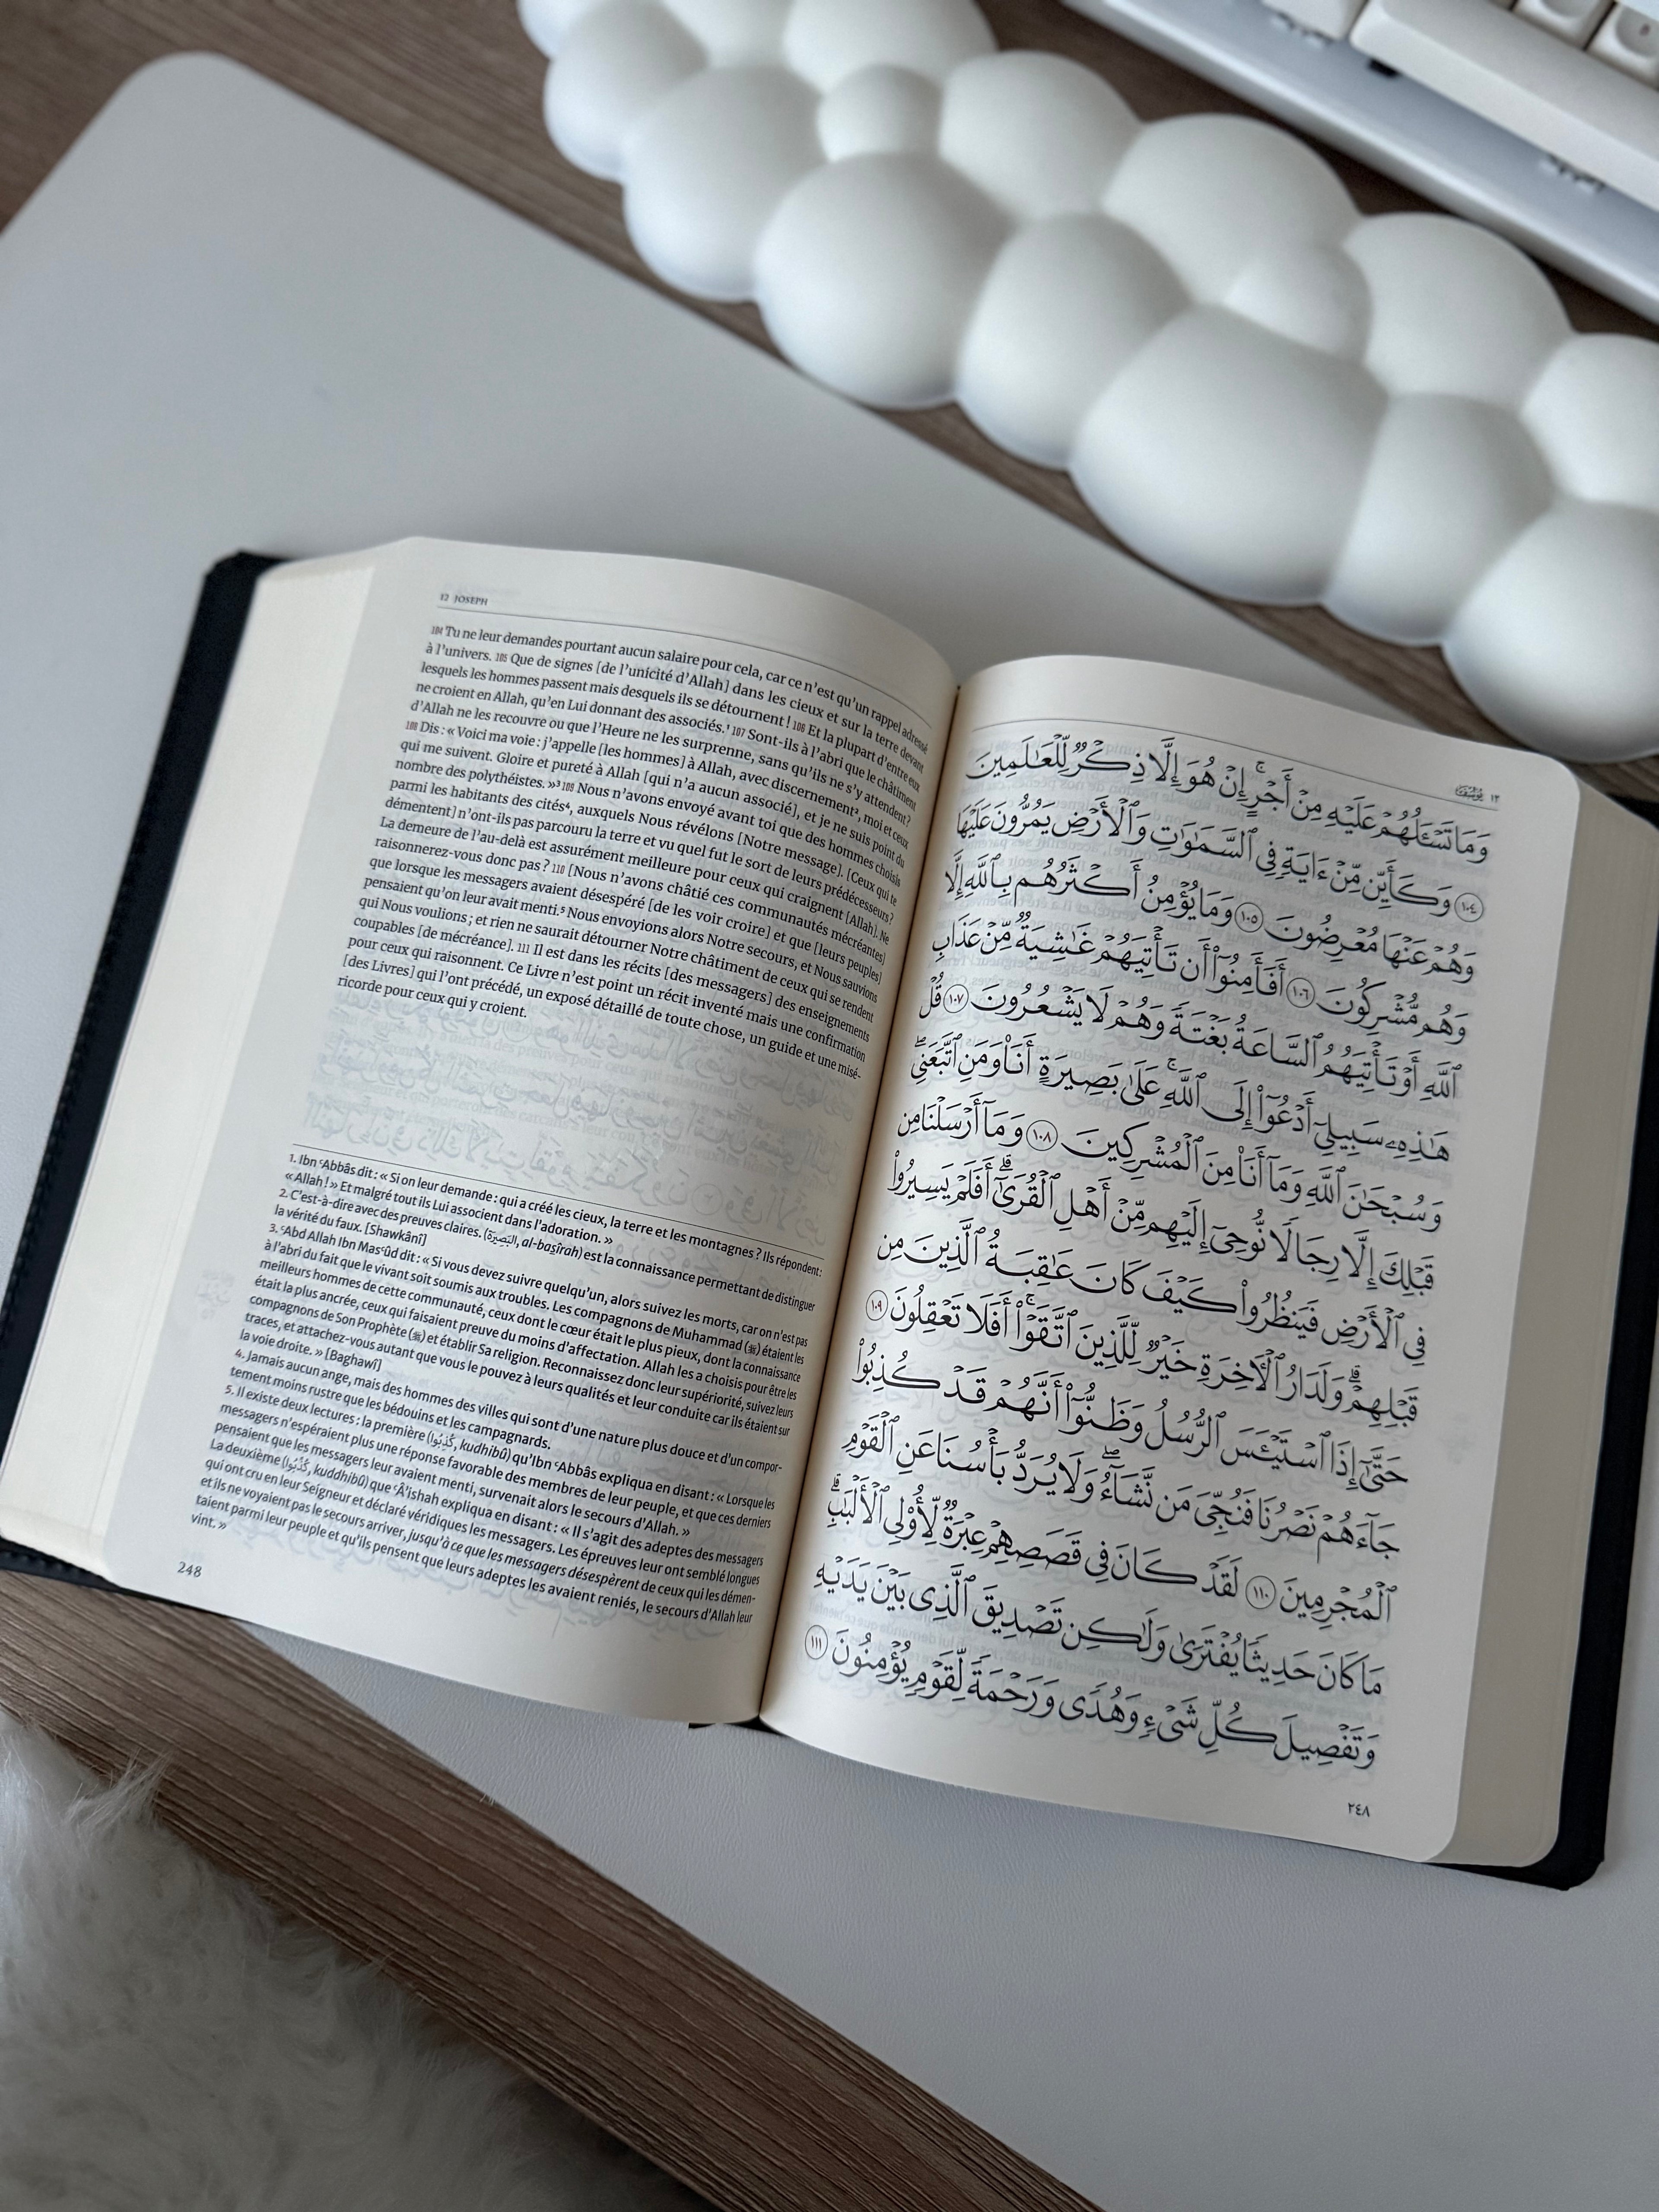 12 JOSEPH
104 Tu ne leur demandes pourtant aucun salaire pour cela, car ce n’est qu’un rappel adressé
à l’univers. 105 Que de signes [de l’unicité d’Allah] dans les cieux et sur la terre devant
lesquels les hommes passent mais desquels ils se détournent ! 106 Et la plupart d’entre eux
ne croient en Allah, qu’en Lui donnant des associés.¹ 107 Sont-ils à l’abri que le châtiment
d’Allah ne les recouvre ou que l’Heure ne les surprenne, sans qu’ils ne s’y attendent ?
108 Dis : « Voici ma voie : j’appelle [les hommes] à Allah, avec discernement², moi et ceux
qui me suivent. Gloire et pureté à Allah [qui n’a aucun associé], et je ne suis point du
nombre des polythéistes. »³ 109 Nous n’avons envoyé avant toi que des hommes choisis
parmi les habitants des cités⁴, auxquels Nous révélons [Notre message]. [Ceux qui te
démentent] n’ont-ils pas parcouru la terre et vu quel fut le sort de leurs prédécesseurs ?
La demeure de l’au-delà est assurément meilleure pour ceux qui craignent [Allah]. Ne
raisonnerez-vous donc pas ? 110 [Nous n’avons châtié ces communautés mécréantes]
que lorsque les messagers avaient désespéré [de les voir croire] et que [leurs peuples]
pensaient qu’on leur avait menti.⁵ Nous envoyions alors Notre secours, et Nous sauvions
qui Nous voulions ; et rien ne saurait détourner Notre châtiment de ceux qui se rendent
coupables [de mécréance]. 111 Il est dans les récits [des messagers] des enseignements
pour ceux qui raisonnent. Ce Livre n’est point un récit inventé mais une confirmation
[des Livres] qui l’ont précédé, un exposé détaillé de toute chose, un guide et une misé-
ricorde pour ceux qui y croient.
1. Ibn ᶜAbbâs dit : « Si on leur demande : qui a créé les cieux, la terre et les montagnes ? Ils répondent :
« Allah ! » Et malgré tout ils Lui associent dans l’adoration. »
2. C’est-à-dire avec des preuves claires. (البَصِيرَة, al-baṣîrah) est la connaissance permettant de distinguer
la vérité du faux. [Shawkânî]
3. ᶜAbd Allah Ibn Masᶜûd dit : « Si vous devez suivre quelqu’un, alors suivez les morts, car on n’est pas
à l’abri du fait que le vivant soit soumis aux troubles. Les compagnons de Muhammad (ﷺ) étaient les
meilleurs hommes de cette communauté, ceux dont le cœur était le plus pieux, dont la connaissance
était la plus ancrée, ceux qui faisaient preuve du moins d’affectation. Allah les a choisis pour être les
compagnons de Son Prophète (ﷺ) et établir Sa religion. Reconnaissez donc leur supériorité, suivez leurs
traces, et attachez-vous autant que vous le pouvez à leurs qualités et leur conduite car ils étaient sur
la voie droite. » [Baghawî]
4. Jamais aucun ange, mais des hommes des villes qui sont d’une nature plus douce et d’un compor-
tement moins rustre que les bédouins et les campagnards.
5. Il existe deux lectures : la première (كُذِبُوا, kudhibû) qu’Ibn ᶜAbbâs expliqua en disant : « Lorsque les
messagers n’espéraient plus une réponse favorable des membres de leur peuple, et que ces derniers
pensaient que les messagers leur avaient menti, survenait alors le secours d’Allah. »
La deuxième (كُذِّبُوا, kuddhibû) que ᶜÂ’ishah expliqua en disant : « Il s’agit des adeptes des messagers
qui ont cru en leur Seigneur et déclaré véridiques les messagers. Les épreuves leur ont semblé longues
et ils ne voyaient pas le secours arriver, jusqu’à ce que les messagers désespèrent de ceux qui les démen-
taient parmi leur peuple et qu’ils pensent que leurs adeptes les avaient reniés, le secours d’Allah leur
vint. »
248
١٢ يُوسُف
وَمَا تَسْـَٔلُهُمْ عَلَيْهِ مِنْ أَجْرٍ ۚ إِنْ هُوَ إِلَّا ذِكْرٌ لِّلْعَـٰلَمِينَ
١٠٤ وَكَأَيِّن مِّنْ ءَايَةٍ فِى ٱلسَّمَـٰوَٰتِ وَٱلْأَرْضِ يَمُرُّونَ عَلَيْهَا
وَهُمْ عَنْهَا مُعْرِضُونَ ١٠٥ وَمَا يُؤْمِنُ أَكْثَرُهُم بِٱللَّهِ إِلَّا
وَهُم مُّشْرِكُونَ ١٠٦ أَفَأَمِنُوٓا۟ أَن تَأْتِيَهُمْ غَـٰشِيَةٌ مِّنْ عَذَابِ
ٱللَّهِ أَوْ تَأْتِيَهُمُ ٱلسَّاعَةُ بَغْتَةً وَهُمْ لَا يَشْعُرُونَ ١٠٧ قُلْ
هَـٰذِهِۦ سَبِيلِىٓ أَدْعُوٓا۟ إِلَى ٱللَّهِ ۚ عَلَىٰ بَصِيرَةٍ أَنَا۠ وَمَنِ ٱتَّبَعَنِى ۖ
وَسُبْحَـٰنَ ٱللَّهِ وَمَآ أَنَا۠ مِنَ ٱلْمُشْرِكِينَ ١٠٨ وَمَآ أَرْسَلْنَا مِن
قَبْلِكَ إِلَّا رِجَالًا نُّوحِىٓ إِلَيْهِم مِّنْ أَهْلِ ٱلْقُرَىٰٓ ۗ أَفَلَمْ يَسِيرُوا۟
فِى ٱلْأَرْضِ فَيَنظُرُوا۟ كَيْفَ كَانَ عَـٰقِبَةُ ٱلَّذِينَ مِن
قَبْلِهِمْ ۗ وَلَدَارُ ٱلْـَٔاخِرَةِ خَيْرٌ لِّلَّذِينَ ٱتَّقَوْا۟ ۗ أَفَلَا تَعْقِلُونَ ١٠٩
حَتَّىٰٓ إِذَا ٱسْتَيْـَٔسَ ٱلرُّسُلُ وَظَنُّوٓا۟ أَنَّهُمْ قَدْ كُذِبُوا۟
جَآءَهُمْ نَصْرُنَا فَنُجِّىَ مَن نَّشَآءُ ۖ وَلَا يُرَدُّ بَأْسُنَا عَنِ ٱلْقَوْمِ
ٱلْمُجْرِمِينَ ١١٠ لَقَدْ كَانَ فِى قَصَصِهِمْ عِبْرَةٌ لِّأُو۟لِى ٱلْأَلْبَـٰبِ ۗ
مَا كَانَ حَدِيثًا يُفْتَرَىٰ وَلَـٰكِن تَصْدِيقَ ٱلَّذِى بَيْنَ يَدَيْهِ
وَتَفْصِيلَ كُلِّ شَىْءٍ وَهُدًى وَرَحْمَةً لِّقَوْمٍ يُؤْمِنُونَ ١١١
٢٤٨